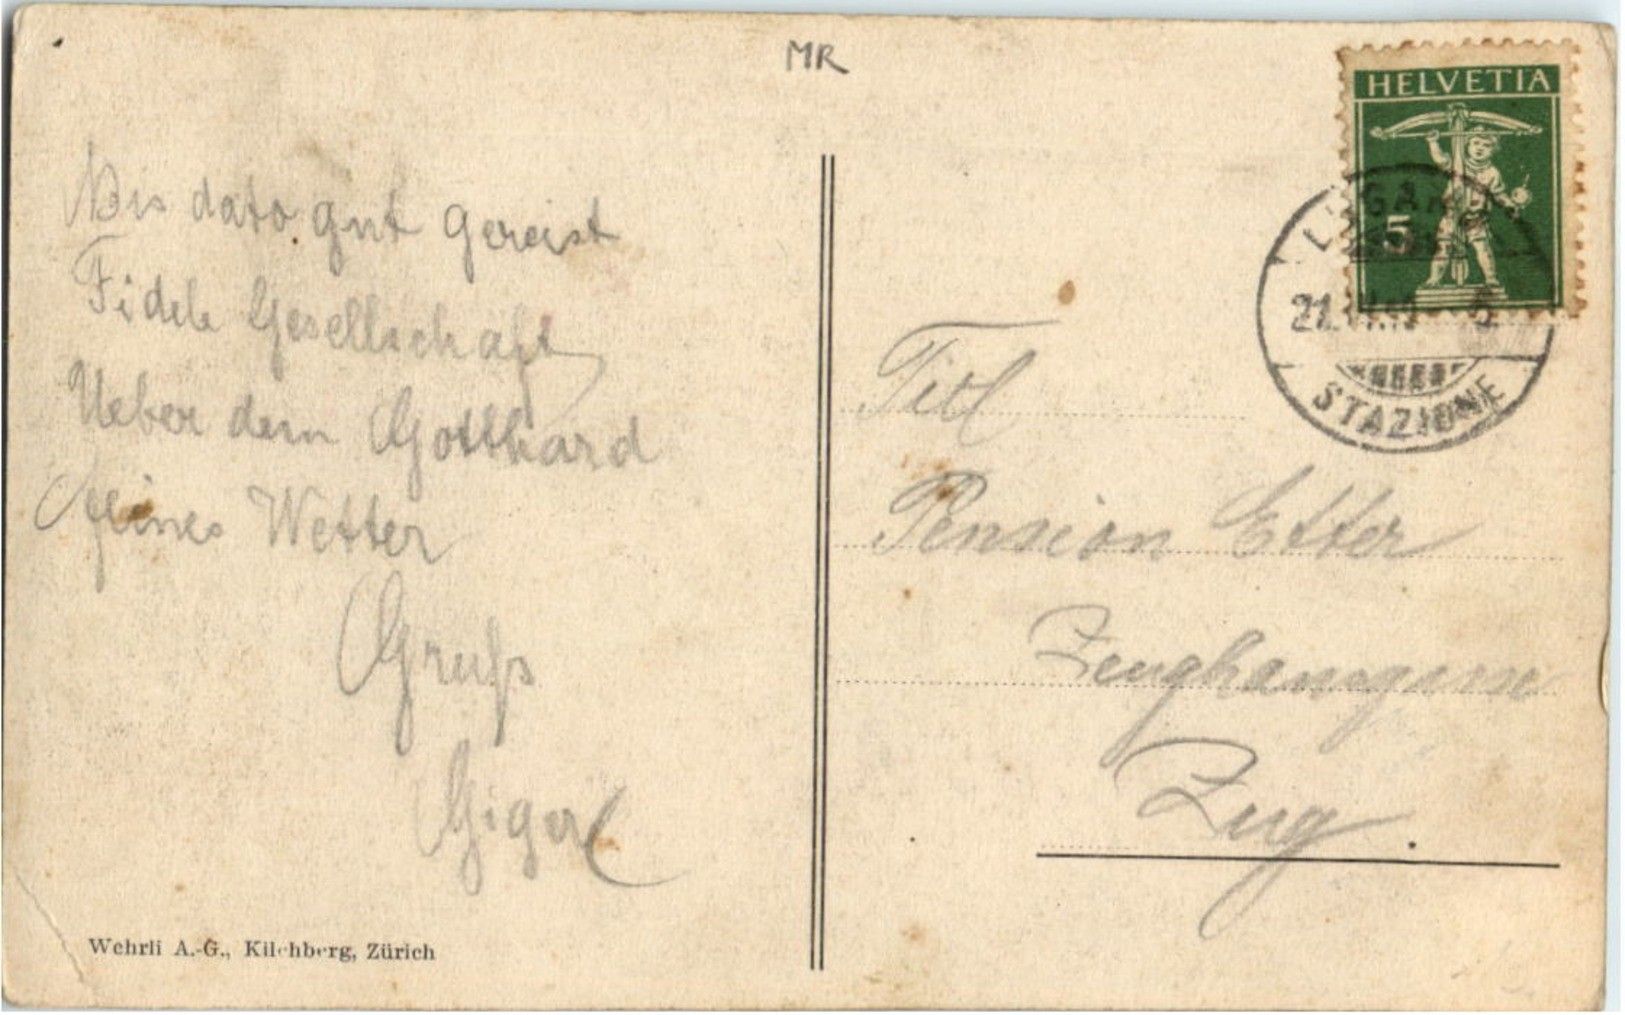 MR
HELVETIA
5
LUGANO
STAZIONE
Bis dato gut gereist
Fidele Gesellschaft
Ueber dem Gotthard
feines Wetter
Gruß
Giger
Titl
Pension Etter
Zeughausgasse
Zug.
Wehrli A.-G., Kilchberg, Zürich